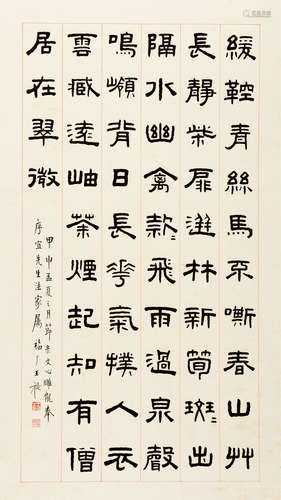 緩鞚青絲馬不嘶春山艸
長靜柴扉迸林新筍斑〻出
隔水幽禽款〻飛雨過泉聲
鳴嶺背日長華氣撲人衣
雲臧遠岫茶煙起知有僧
居在翠微
甲申孟夏之月節文心雕龍奉
序宜先生法家屬 福厂王褆